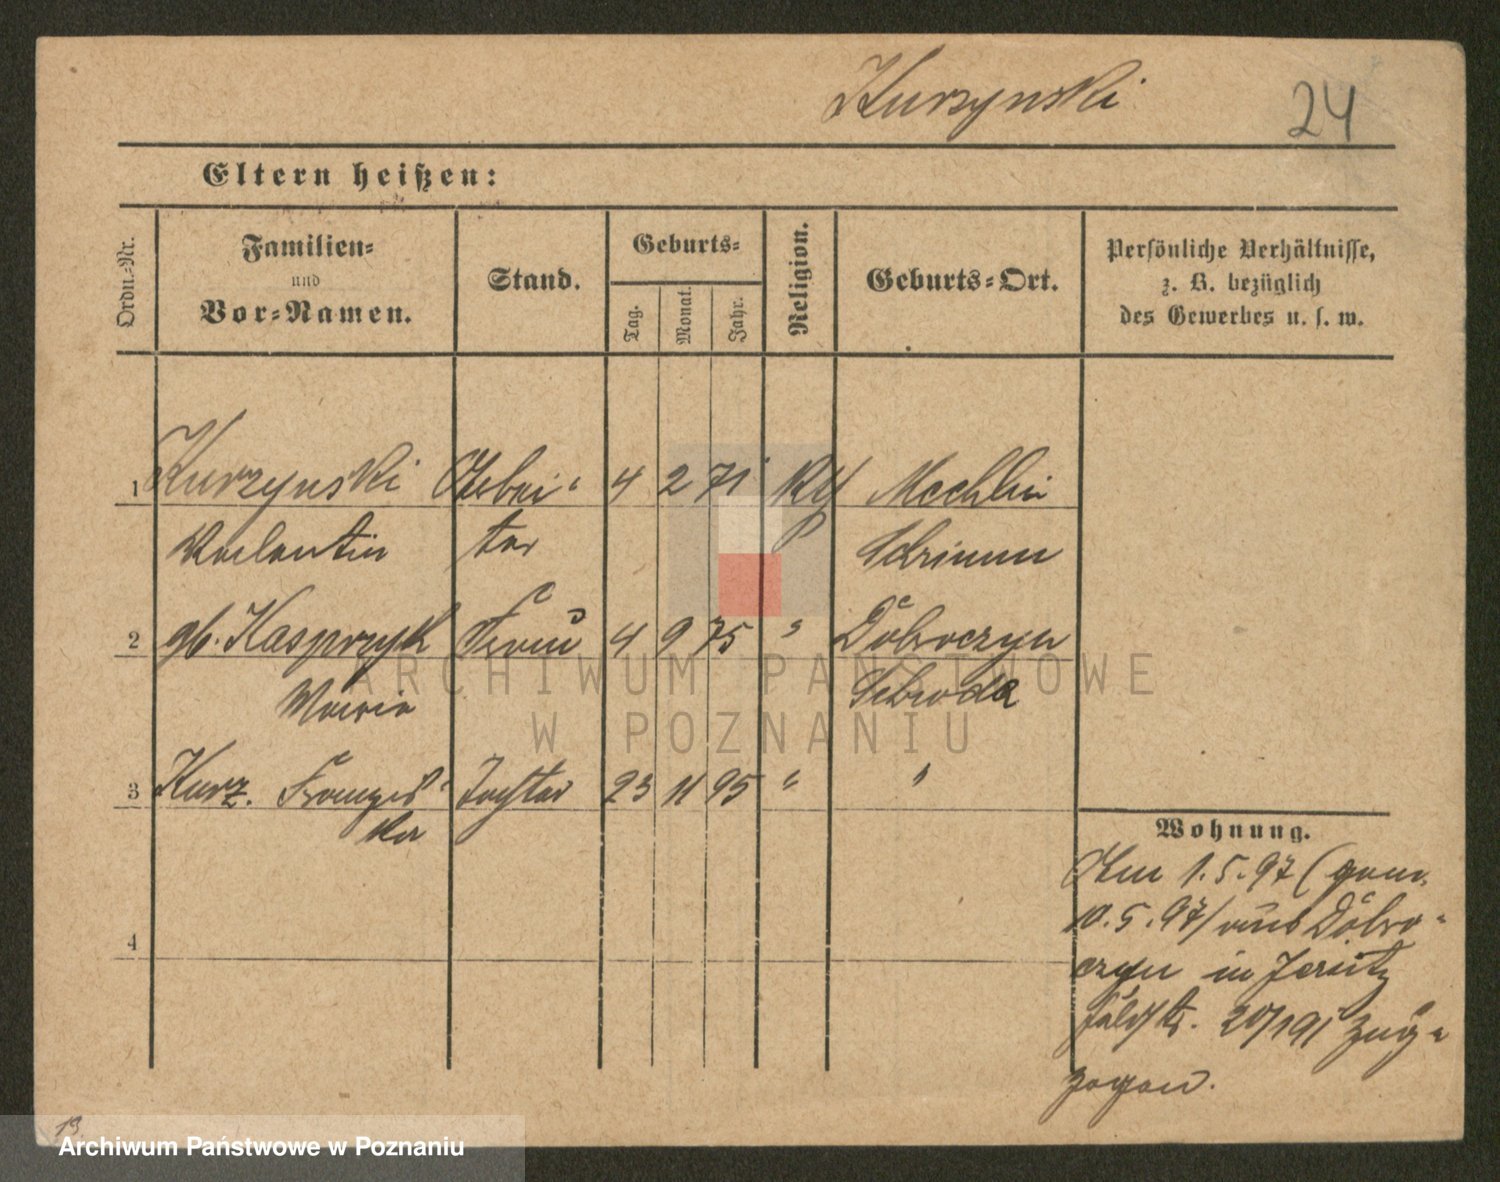 Kurzynski
24
Eltern heißen:
Ordn.-Nr.
Familien-
und
Vor-Namen.
Stand.
Geburts-
Tag.
Monat.
Jahr.
Religion.
Geburts-Ort.
Persönliche Verhältnisse,
z. B. bezüglich
des Gewerbes u. s. w.
1 Kurzynski Arbei- 4 2 71 Mechlin
Valentin ter Schrimm
2 gb. Kasprzyk Frau 4 9 75 " Dobroczyn
Maria Schroda
3 Kurz. Franzis- Tochter 23 11 95 " "
ka
4
Wohnung.
Am 1.5.97 (gem.
10.5.97) aus Dobro-
czyn in Jersitz
20/191 zuge-
zogen.
ARCHIWUM PAŃSTWOWE
W POZNANIU
13
Archiwum Państwowe w Poznaniu